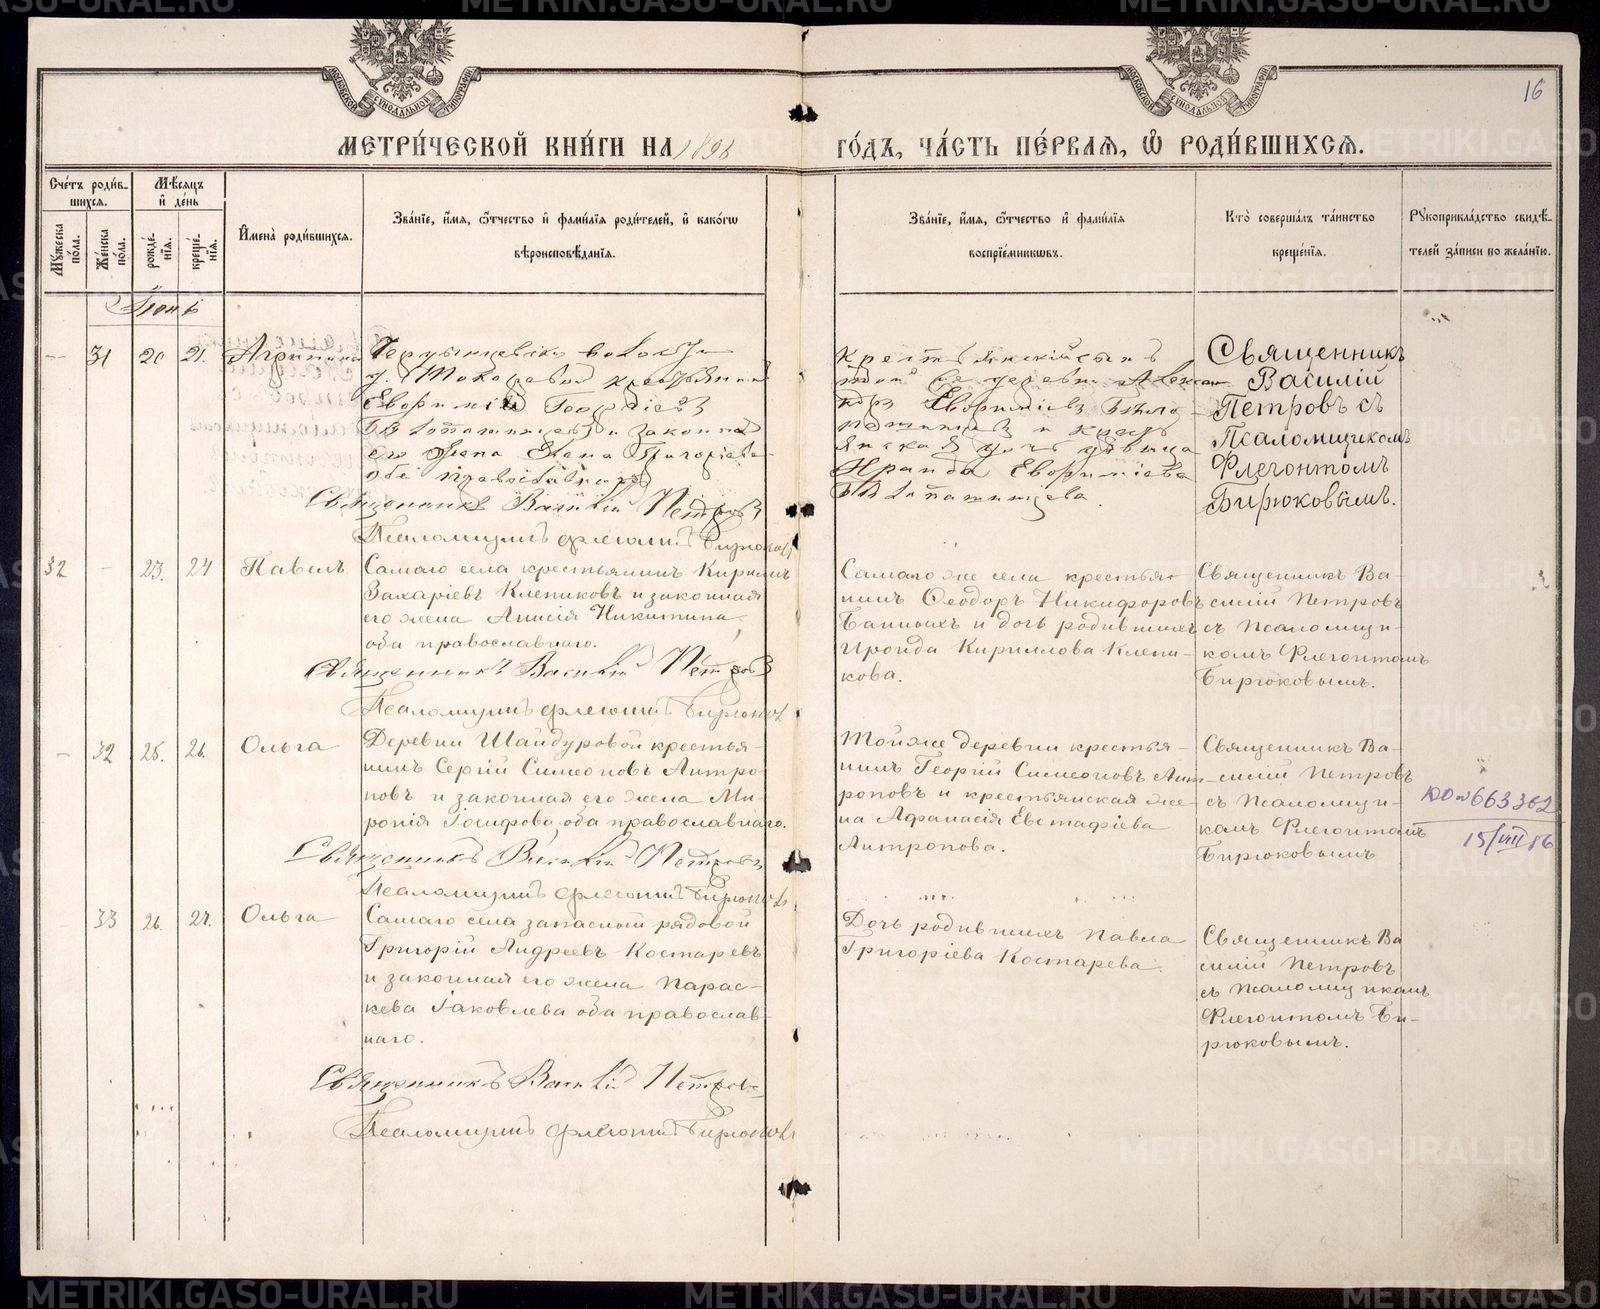 16
МЕТРИ́ЧЕСКОЙ КНИ́ГИ НА 1898 ГО́ДЪ, ЧА́СТЬ ПЕ́РВАЯ, Ѽ РОДИ́ВШИХСЯ.
Сче́тъ роди́в-
шихся.
Мѣ́сяцъ
и҆ де́нь
Мꙋ́жеска
по́ла.
Же́нска
по́ла.
рожде́-
нїя.
креще́-
нїя.
И҆мена̀ роди́вшихся.
Зва́нїе, и҆́мя, ѻ҆́тчество и҆ фами́лїя роди́телей, и҆ како́гѡ
вѣроисповѣ́данїя.
Зва́нїе, и҆́мя, ѻ҆́тчество и҆ фами́лїя
воспрїе́мникѡвъ.
Кто̀ соверша́лъ та́инство
креще́нїя.
Рꙋкоприкла́дство свидѣ́-
телей за́писи по жела́нїю.
Іюнь
31 20 21.
крестьянскій сынъ
Священникъ
Василій
Петровъ съ
Псаломщикомъ
Флегонтомъ
Бирюковымъ.
Священникъ Василій Петровъ
Псаломщикъ Флегонтъ Бирюковъ
32 - 23. 24 Павелъ
Самаго села крестьянинъ Кириллъ
Захаріевъ Клепиковъ и законная
его жена Анисія Никитина
оба православнаго.
Священникъ Василій Петровъ
Псаломщикъ Флегонтъ Бирюковъ
Самаго же села крестья-
нинъ Ѳеодоръ Никифоровъ
Банныхъ и дочь родившихъ
Ироида Кириллова Клепи-
кова.
Священникъ Ва-
силій Петровъ
съ Псаломщи-
комъ Флегонтомъ
Бирюковымъ.
- 32 25. 26. Ольга
Деревни Шайдуровой крестья-
нинъ Сергій Симеоновъ Антро-
повъ и законная его жена Ми-
ропія Іосифова, оба православнаго.
Священникъ Василій Петровъ
Псаломщикъ Флегонтъ Бирюковъ
Той же деревни крестья-
нинъ Георгій Симеоновъ Ант-
роповъ и крестьянская же-
на Афанасія Евстафіева
Антропова.
Священникъ Ва-
силій Петровъ
съ Псаломщи-
комъ Флегонтомъ
Бирюковымъ
ЮО №663362
15/VIII 86
33 26. 27. Ольга
Самаго села запасный рядовой
Григорій Андреевъ Костаревъ
и законная его жена Парас-
кева Іаковлева оба православ-
наго.
Священникъ Василій Петровъ
Псаломщикъ Флегонтъ Бирюковъ
Дочь родившихъ Павла
Григоріева Костарева.
Священникъ Ва
силій Петровъ
съ Псаломщикомъ
Флегонтомъ Би-
рюковымъ.
METRIKI.GASO-URAL.RU